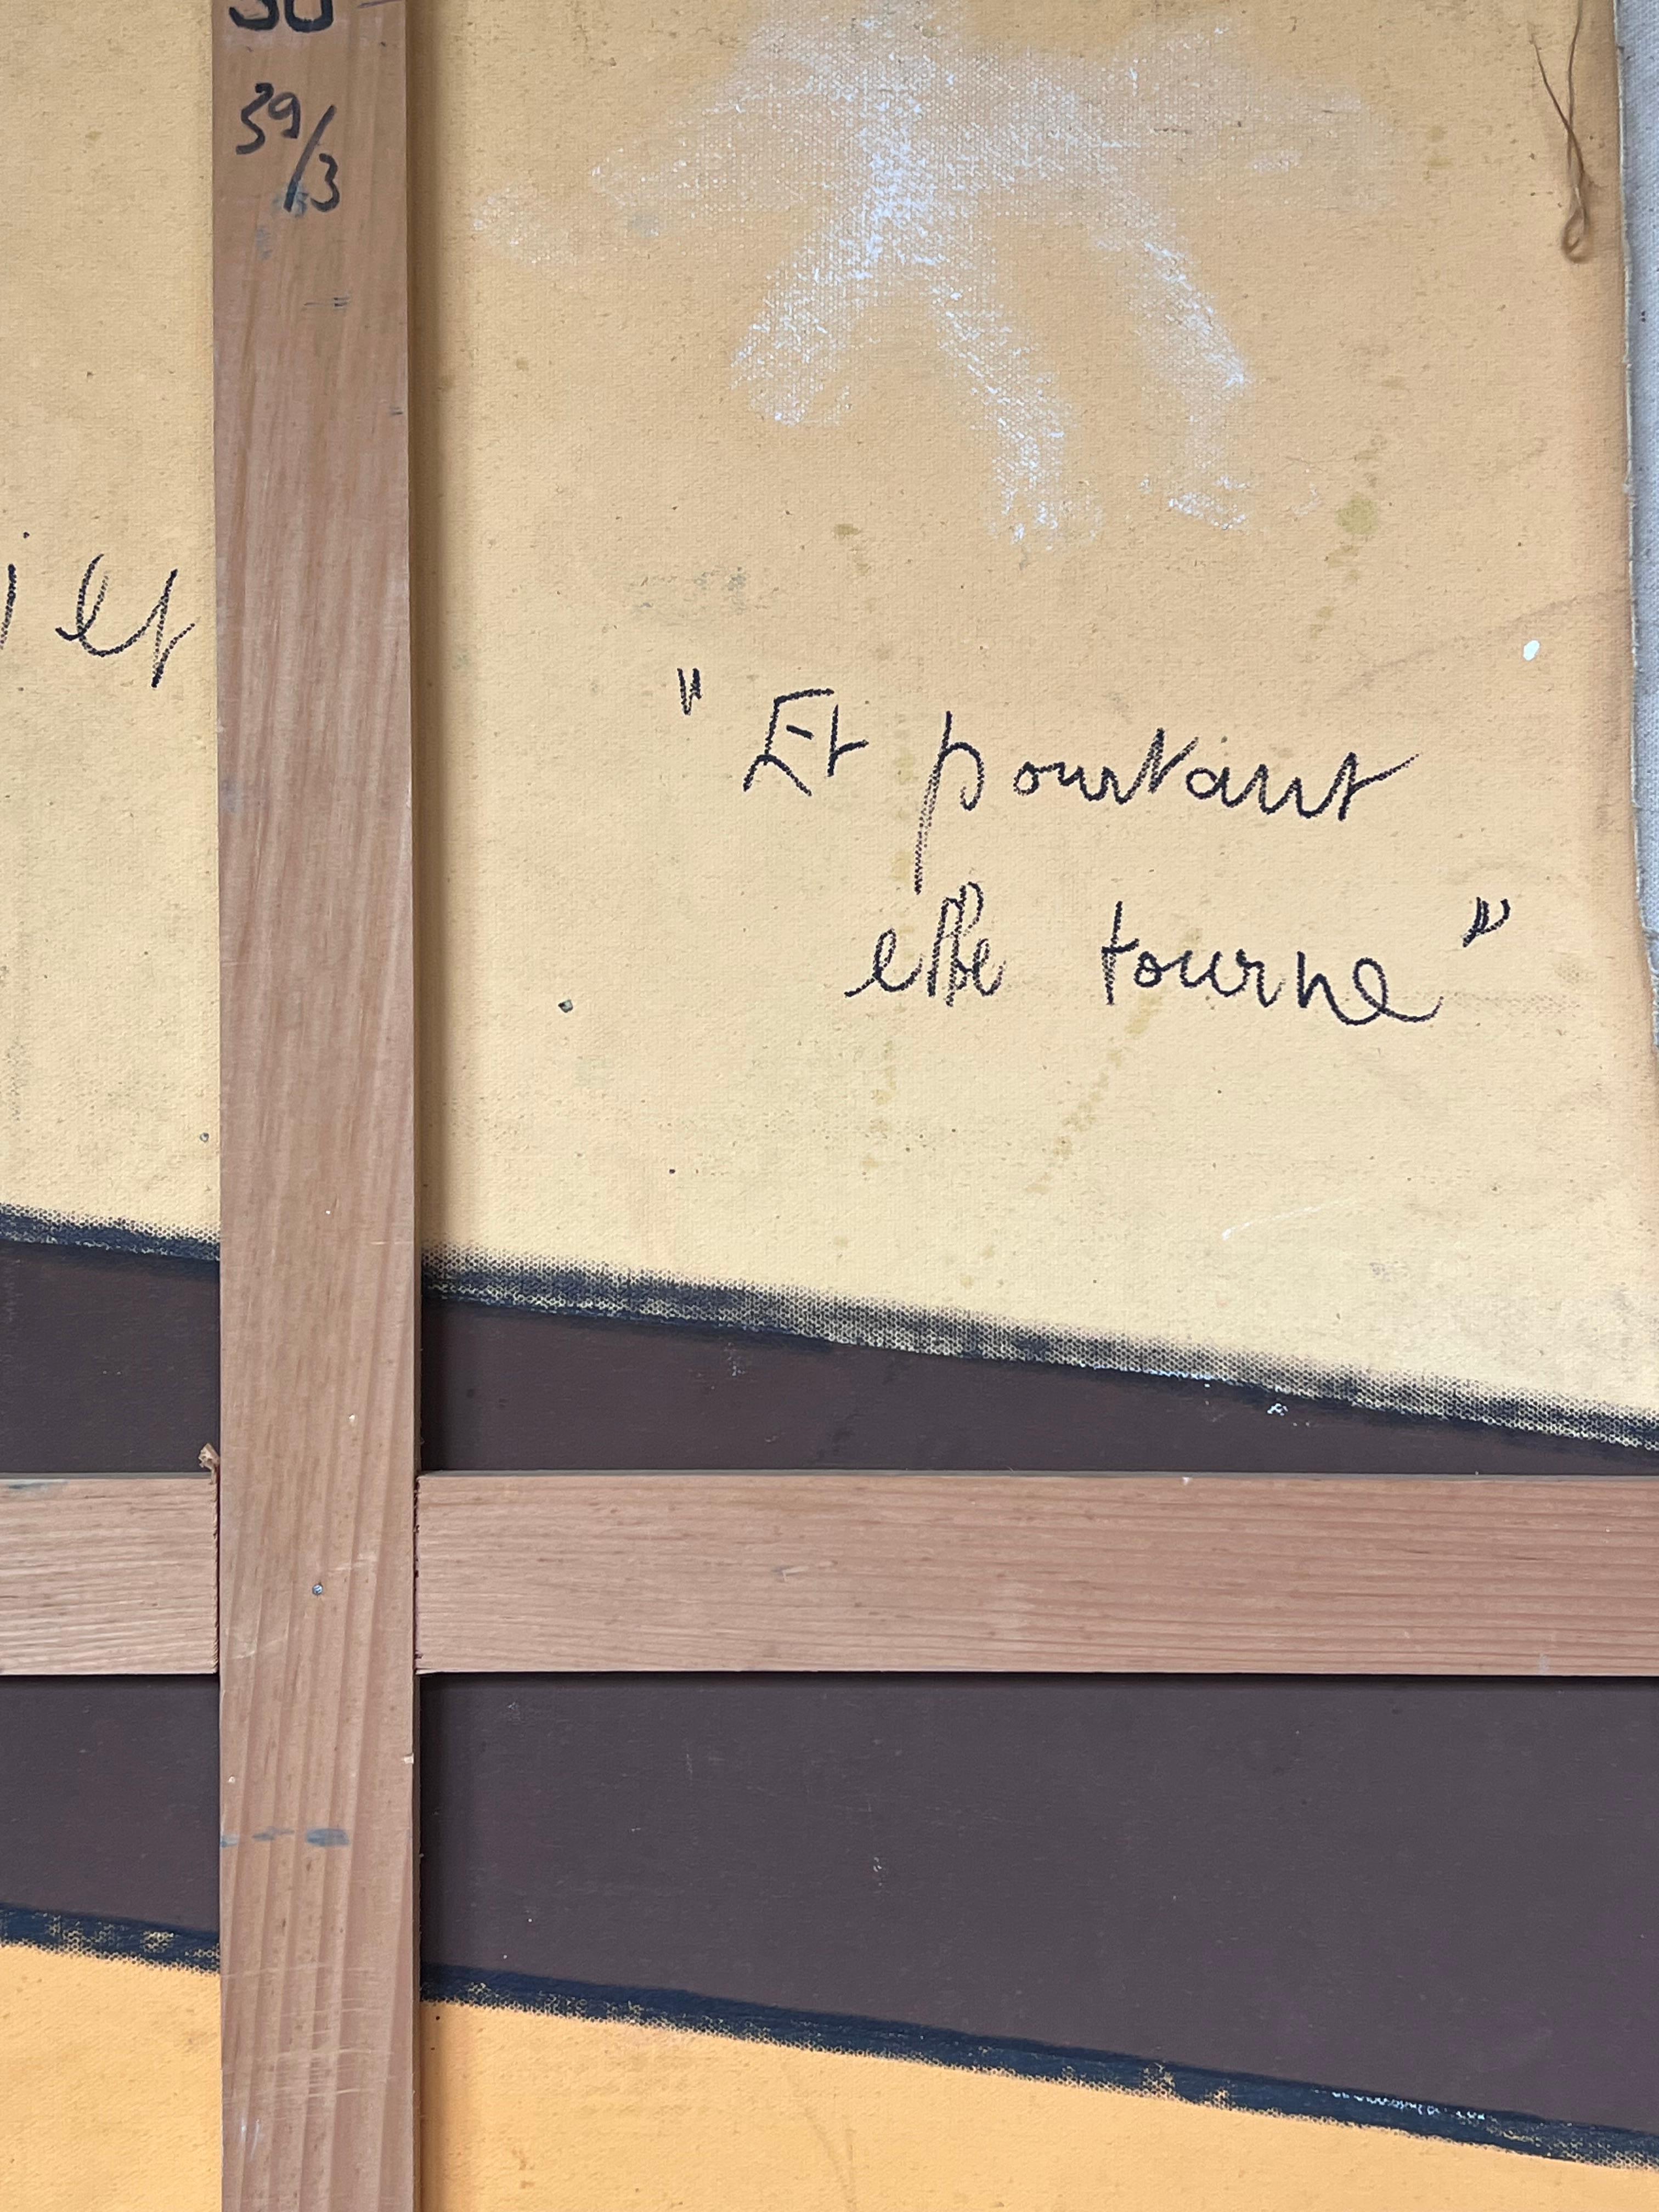 39/3
"Et pourtant
elle tourne"